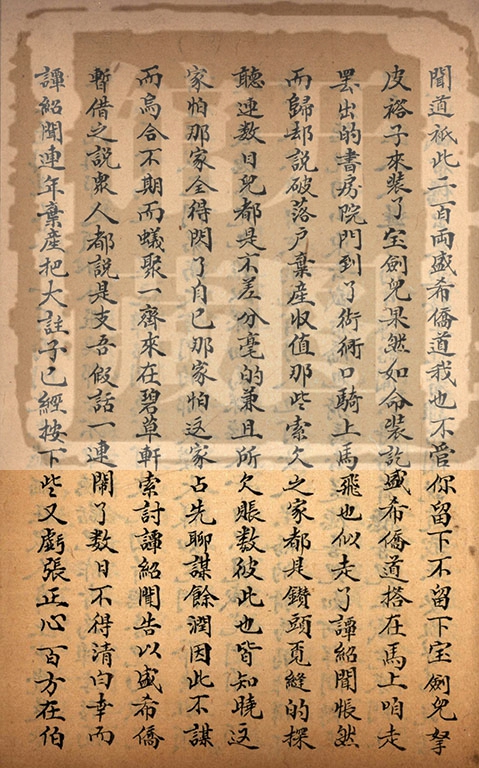 聞道祇此二百両盛希僑道我也不管你留下不留下宝劍兒拏
皮褡子來裝了宝劍兒果然如命裝訖盛希僑道搭在馬上咱走
罷出的書房院門到了衚衕口騎上馬飛也似走了譚紹聞悵然
而歸却說破落户棄産収值那些索欠之家都是鑽頭覓縫的探
聽連数日兒都是不差分毫的兼且所欠賬数彼此也皆知曉这
家怕那家全得閃了自己那家怕这家占先聊謀餘潤因此不謀
而烏合不期而蟻聚一齊來在碧草軒索討譚紹聞告以盛希僑
暫借之說衆人都說是支吾假話一連鬧了数日不得清白幸而
譚紹聞連年棄産把大註子已經按下些又虧張正心百方在伯